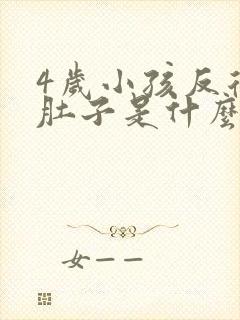 4歲小孩反復
肚子是什麼
女——